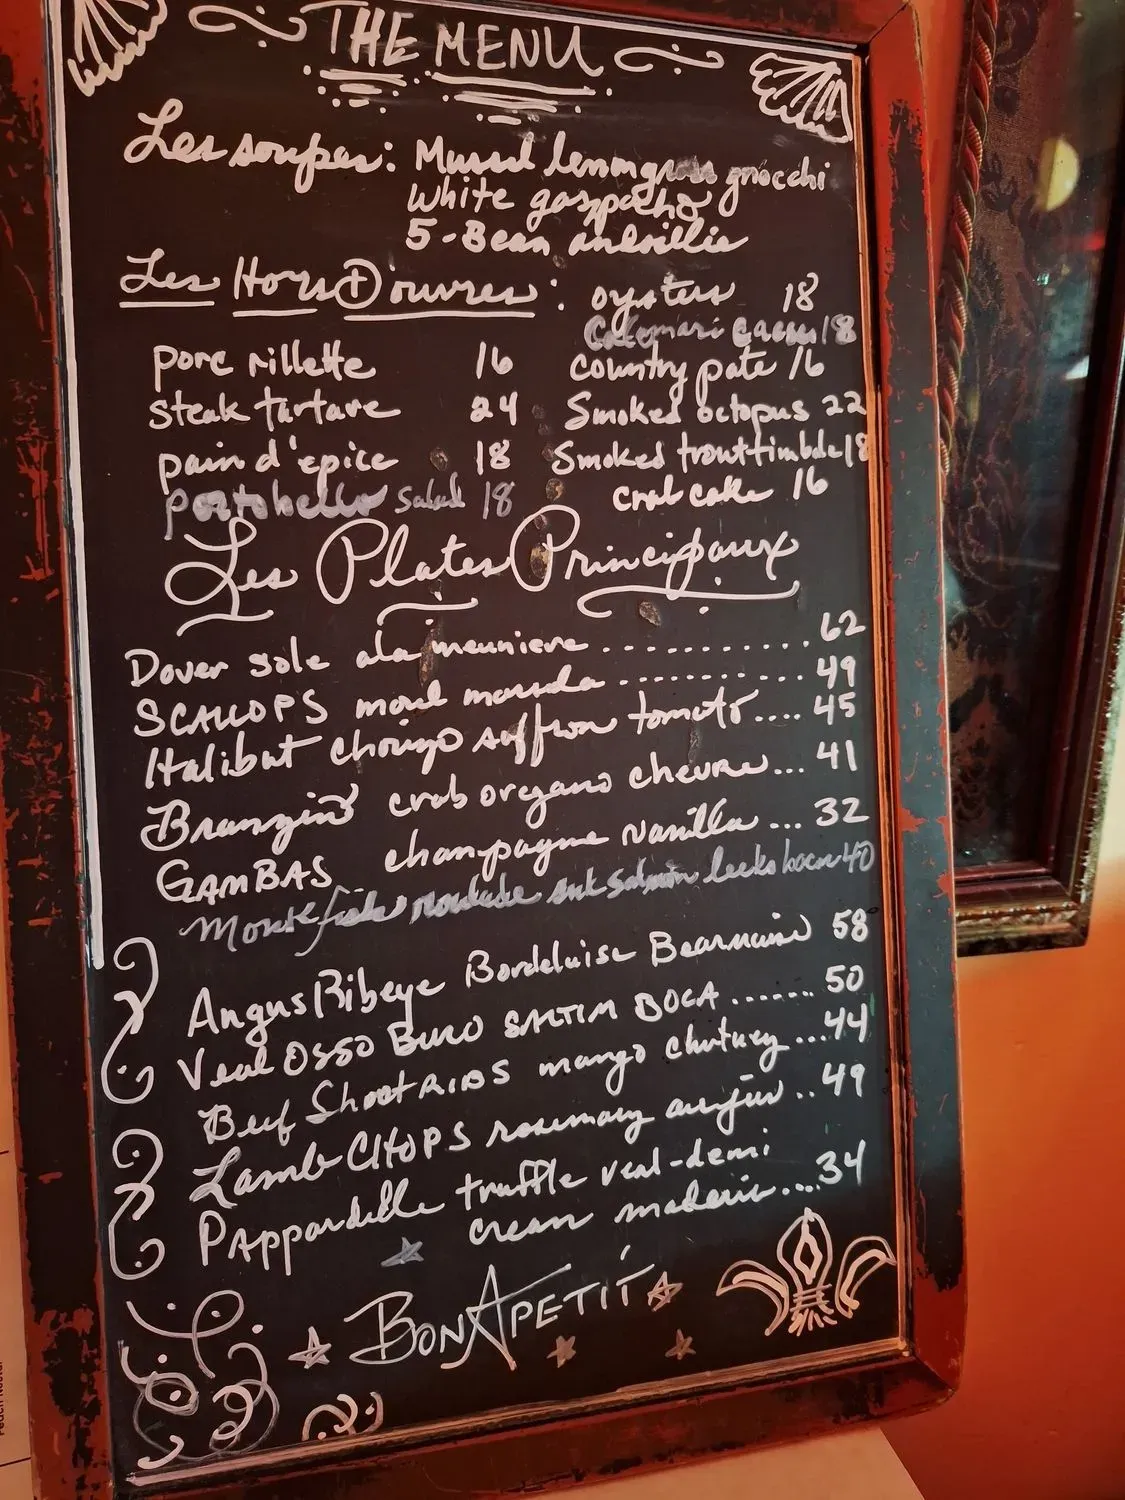 THE MENU
Les soupes: Mussel lemongrass gnocchi
white gazpacho
5-Bean
Les Hors D'ouvres: oysters 18
Calamari 18
porc rillette 16 country pate 16
steak tartare 24 Smoked octopus 22
pain d'epice 18 Smoked trout timbale 18
portobello salad 18 crab cake 16
Les Plates Principaux
Dover sole a la meuniere ........... 62
SCALLOPS morel marsala .......... 49
Halibut chorizo saffron tomato .... 45
Branzino crab oregano chevre ... 41
GAMBAS champagne vanilla ... 32
Monkfish roulade salmon leeks 40
Angus Ribeye Bordelaise Bearnaise 58
Veal OSSO BUCO SALTIM BOCA ....... 50
Beef Short RIBS mango chutney ... 44
Lamb CHOPS rosemary au jus .. 49
PAppardelle truffle veal-demi
cream .... 34
BON APETIT